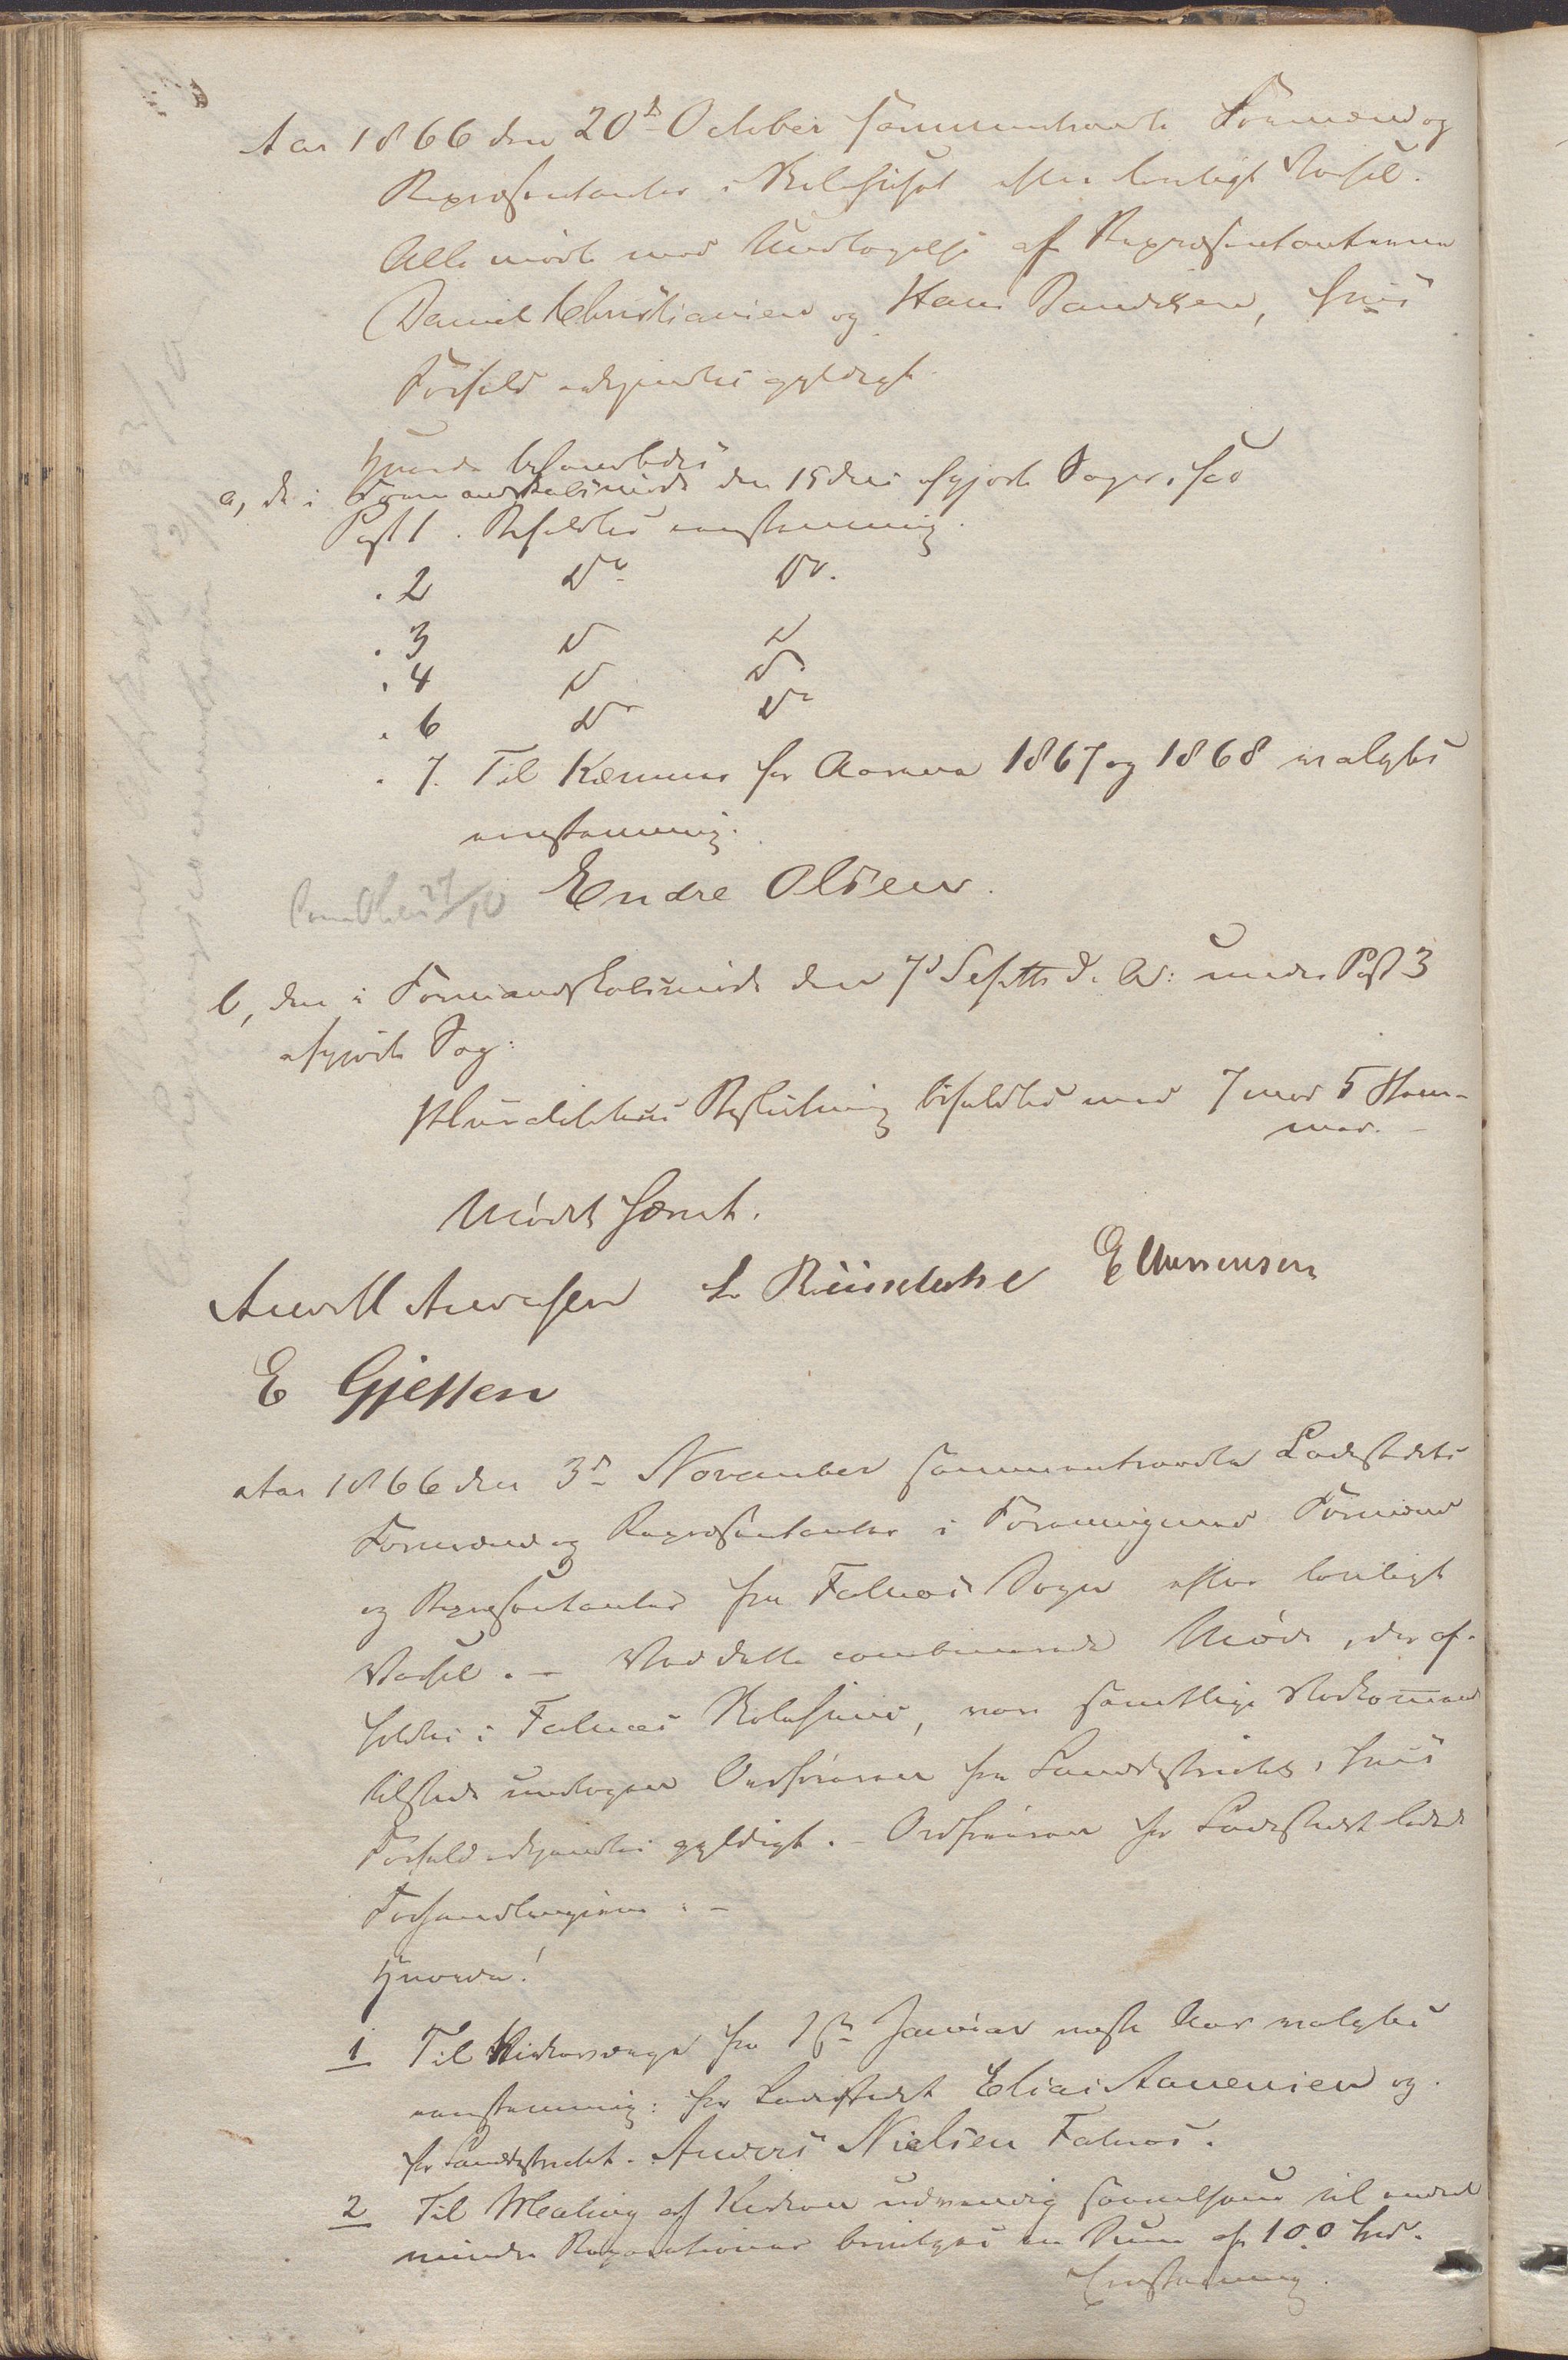 Aar 1866 den 20d October sammentraadte Formænd og
Repræsentanter i Skolehuset efter lovligt Varsel.
Alle mødte med Undtagelse af Repræsentanterne
Daniel Christiansen og Hans Davidsen, hvis
Forfald ansees gyldigt.
Hvorda behandledes
a, de i Formandskabsmøde den 15 dns afgjorte Sager, saa
Post 1. Bifaldtes eenstemmig.
" 2 Do Do.
" 3 D D
" 4 D D
" 6 Do Do
" 7. Til Kæmner for Aarene 1867 og 1868 valgtes
eenstemmig.
Endre Olsen.
27/10
b, den i Formandskabsmøde den 7d Septbr d. A: under Post 3
afgjorte Sag:
Pluralitetens Beslutning bifaldtes med 7 mod 5 Stem-
mer.
Mødet hævet.
E Gjessen
Aar 1866 den 3d November sammentraadte Ladestedets
Formænd og Repræsentanter i Forening med Formænd
og Repræsentanter fra Falnæs Sogn efter lovligt
Varsel. - Ved dette combinerede Møde, der af-
holdtes i Falnæs Skolehuus, var samtlige Vedkommende
tilstede undtagen Ordføreren fra Landdistriktet, hvis
Forfald ansees gyldigt. - Ordføreren for Ladestedet ledede
Forhandlingerne. -
Hvorda!
1 Til Kirkeværge fra 1ste Januar næste Aar valgtes
eenstemmig: for Ladestedet Elias Aanensen og
for Landdistriktet. Anders Nielsen Falnæs.
2 Til Maling af Kirken udvendig saavelsom til andre
mindre Reparationer bevilges en Sum af 100 Spd.
Eenstemmig.